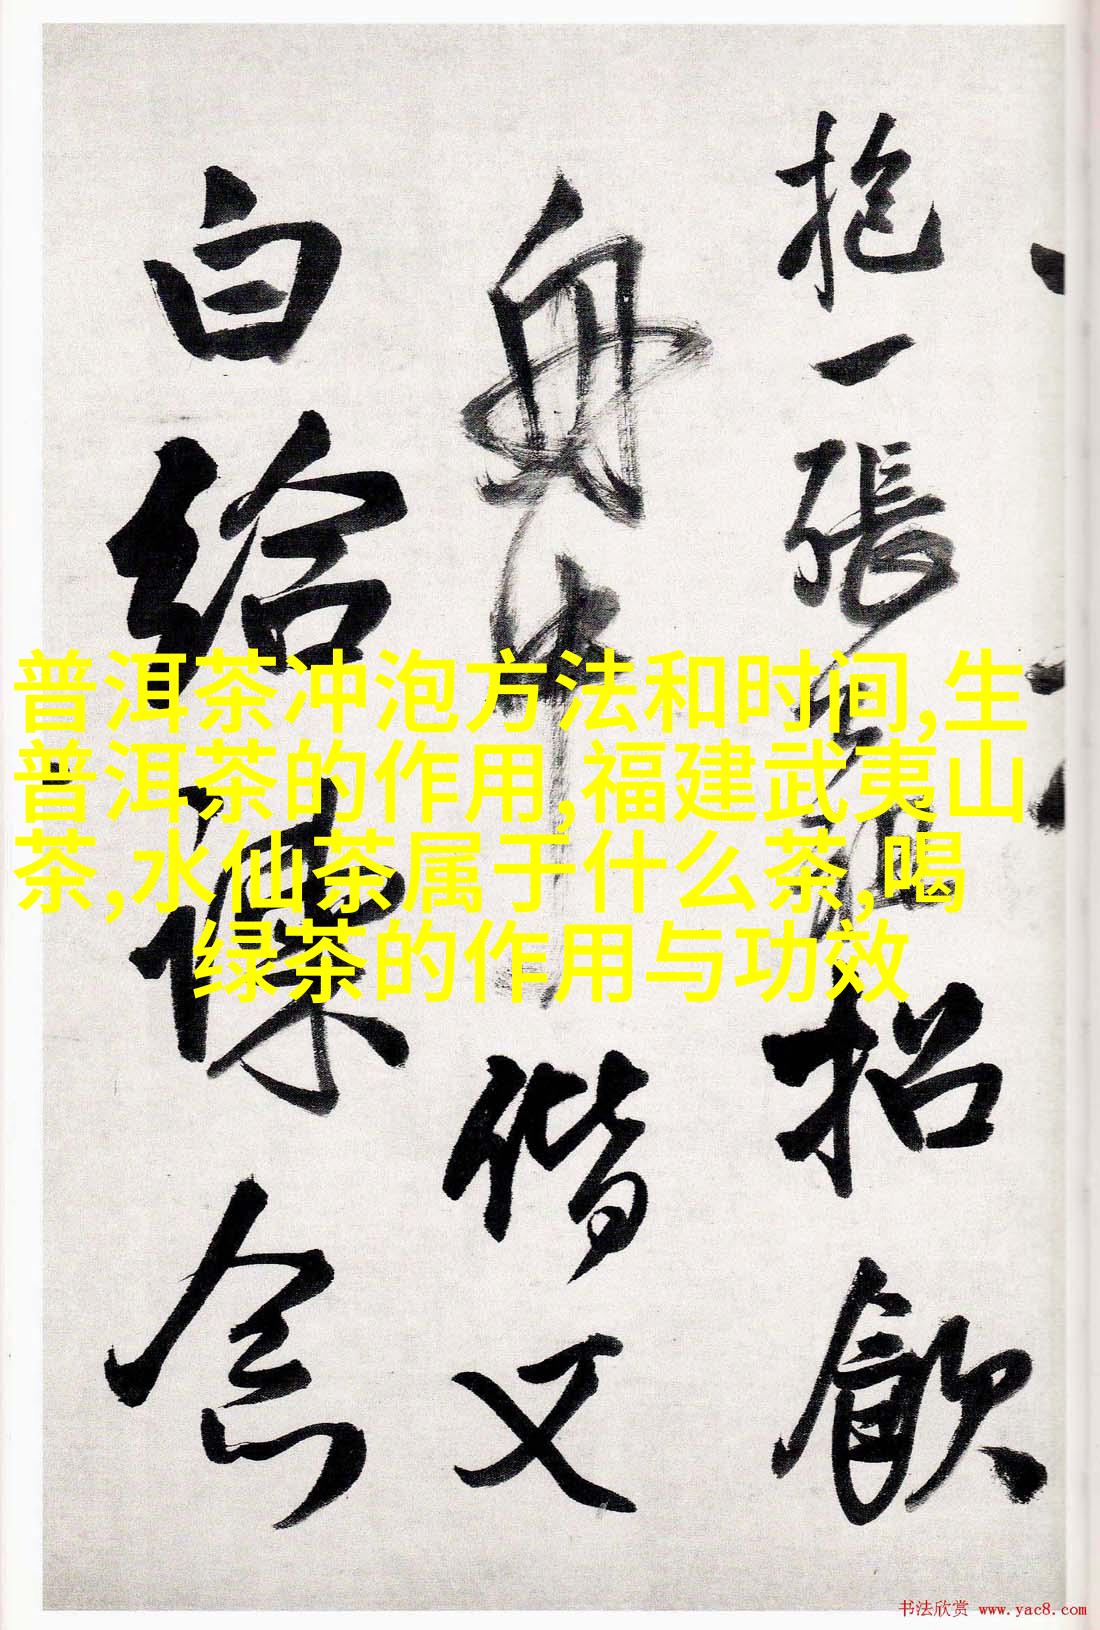 抱一張招飲
舟中偕又
白給諫念
普洱茶冲泡方法和时间,生
普洱茶的作用,福建武夷山
茶,水仙茶属于什么茶,喝
绿茶的作用与功效
书法欣赏 www.yac8.com